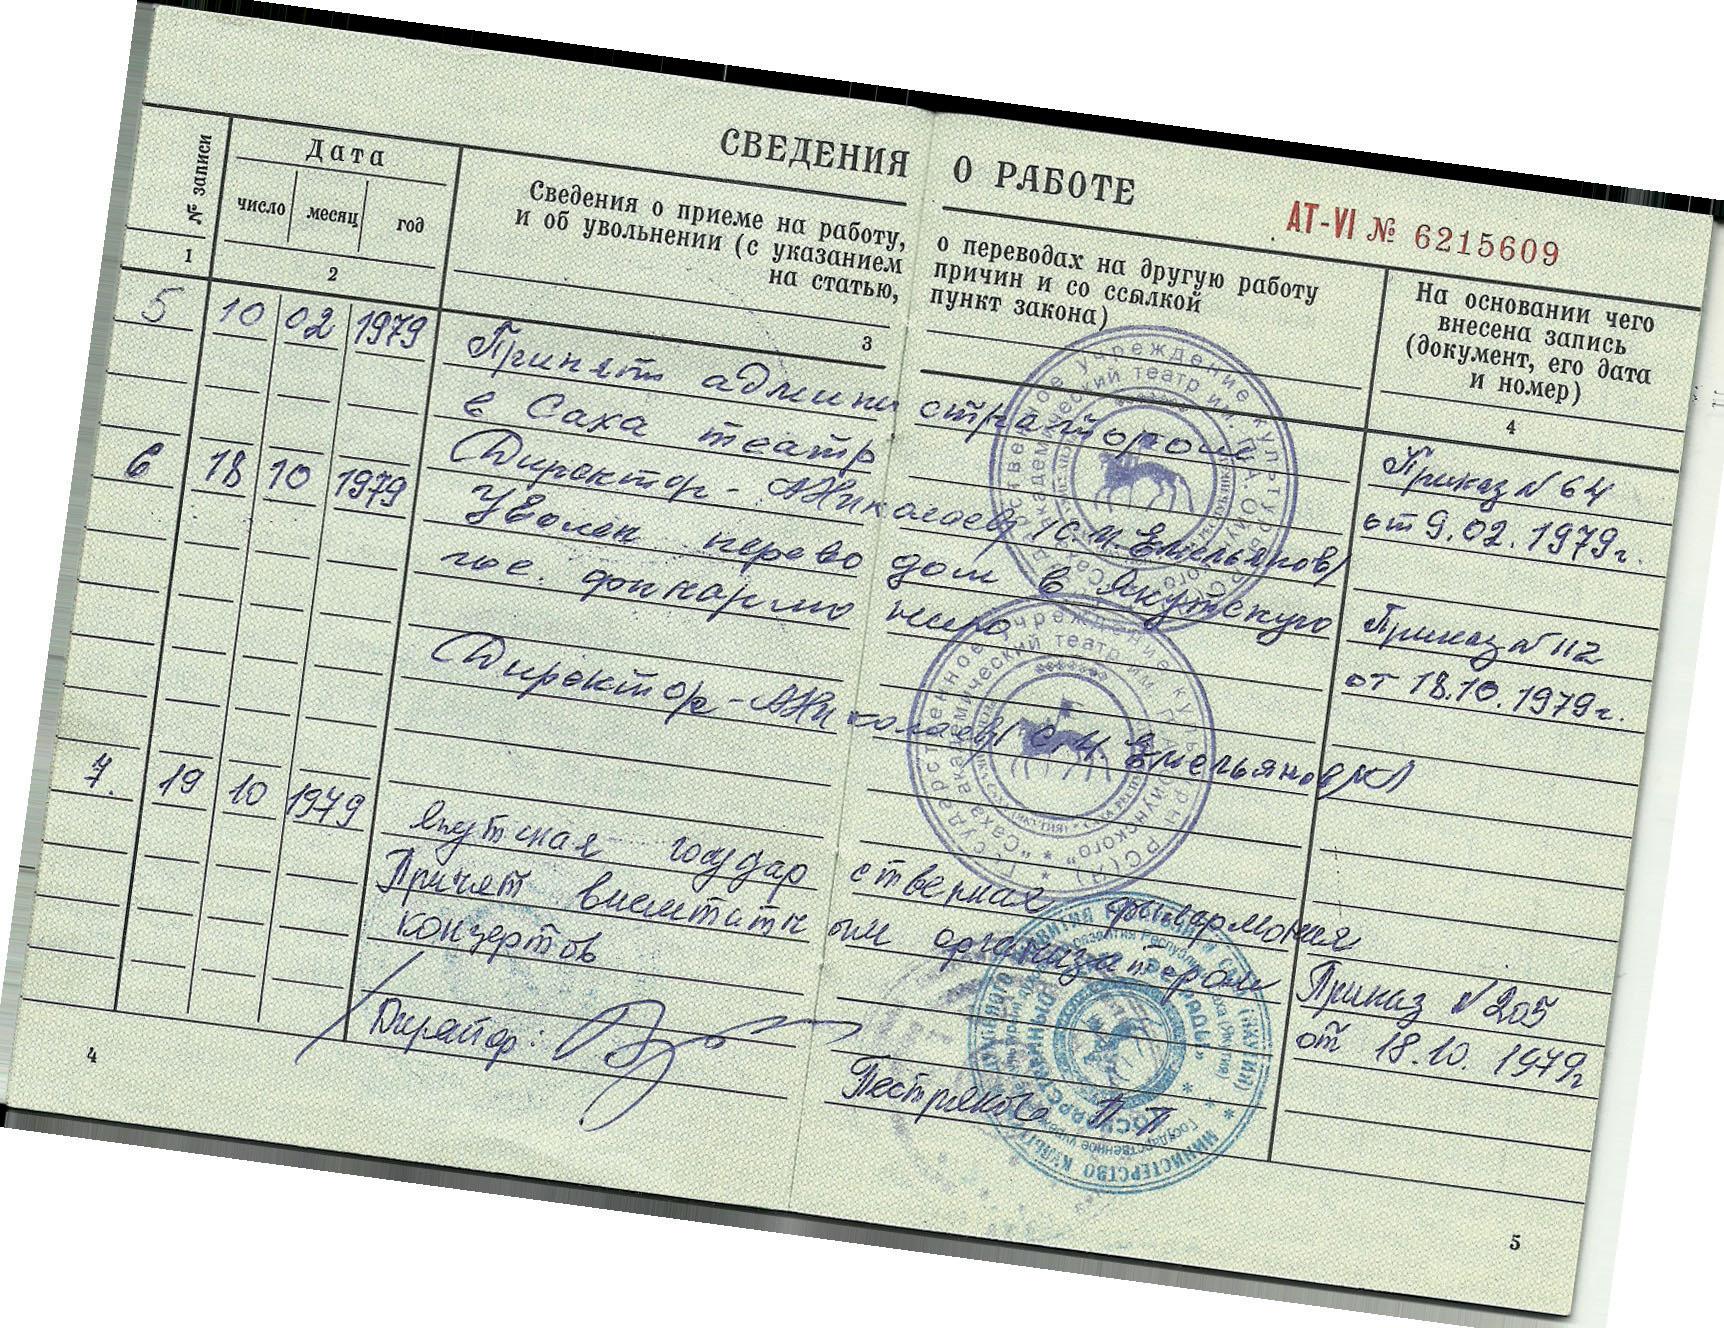 СВЕДЕНИЯ О РАБОТЕ
АТ-VI № 6215609
№ записи
Дата
число месяц год
Сведения о приеме на работу,
и об увольнении (с указанием
на статью,
о переводах на другую работу
причин и со ссылкой
пункт закона)
На основании чего
внесена запись
(документ, его дата
и номер)
1 2 3 4
5 10 02 1979 Принят администратором
в Саха театр
Приказ №64
от 9.02.1979г.
Директор - (С.И. Емельянов)
6 18 10 1979 Уволен переводом в Якутскую
гос. филармонию
Приказ №112
от 18.10.1979г.
Директор - С.И. Емельянов
7. 19 10 1979
Якутская государственная филармония
Принят внештатным организатором
концертов
Приказ №205
от 18.10.1979г
Директор:
Пестрякова П.П
4
5